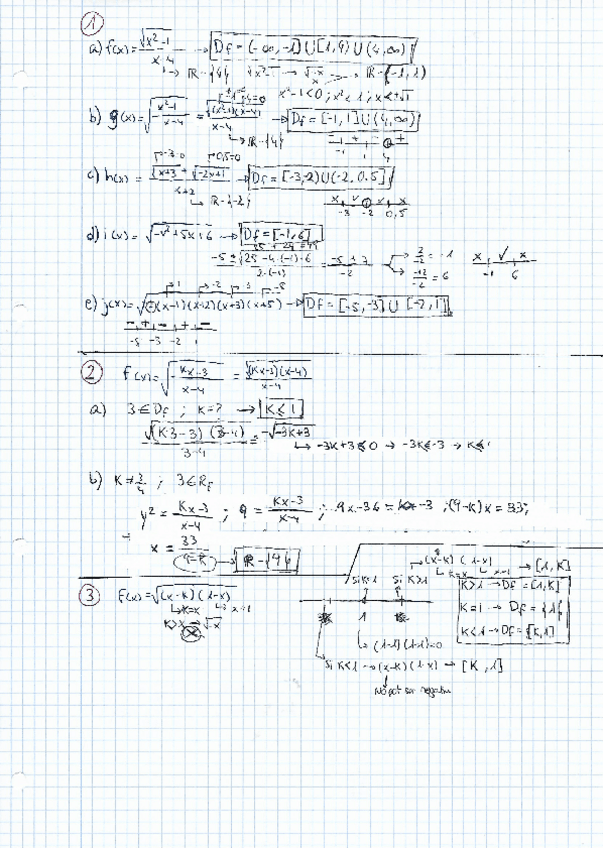 1
a) f(x) = √(x²-1) / x-4 → Df = (-∞, -1] ∪ [1, 4) ∪ (4, ∞)
→ ℝ - {4} → √-x / x → ℝ - (-1, 1)
x² - 1 < 0 ; x² < 1 ; x < ±√1
b) g(x) = √(- x²-1 / x-4) = √((x²-1)(x-4)) / x-4 → Df = [-1, 1] ∪ (4, ∞)
→ ℝ - {4}
-1 1 4
c) h(x) = √(x+3) + √(-2x+1) / x+2 → Df = [-3, -2) ∪ (-2, 0,5]
→ ℝ - {-2}
-3 -2 0,5
d) i(x) = √(-x²+5x+6) → Df = [-1, 6]
-5 ± √(25-4·(-1)·6) / 2·(-1) = -5 ± 7 / -2 → 2/-2 = -1
→ -12/-2 = 6
-1 6
e) j(x) = √(-(x-1)(x+2)(x+3)(x+5)) → Df = [-5, -3] ∪ [-2, 1]
- + - + -
-5 -3 -2 1
2
f(x) = √(- Kx-3 / x-4) = √((Kx-3)(x-4)) / x-4
a) 3 ∈ Df ; K=? → K ≤ 1
√((K·3-3)(3-4)) / 3-4 = -√(-3K+3)
→ -3K+3 ≤ 0 → -3K ≤ -3 →
b) K ≠ 3/4 ; 3 ∈ Rf
y² = Kx-3 / x-4 ; 9 = Kx-3 / x-4 ; 9x-36 = Kx-3 ; (9-K)x = 33;
x = 33 / 9-K → ℝ - {9}
3
f(x) = √((x-K)(1-x))
→ K=x → x=1
K>x → √-x
Si K<1 Si K>1
→ (x-K)(1-x) → [1, K]
K=x x=1
K>1 → Df = [1, K]
K=1 → Df = {1}
K<1 → Df = [K, 1]
1
→ (1-1)(1-1)=0
Si K<1 → (x-K)(1-x) → [K, 1]
No pot ser negatiu